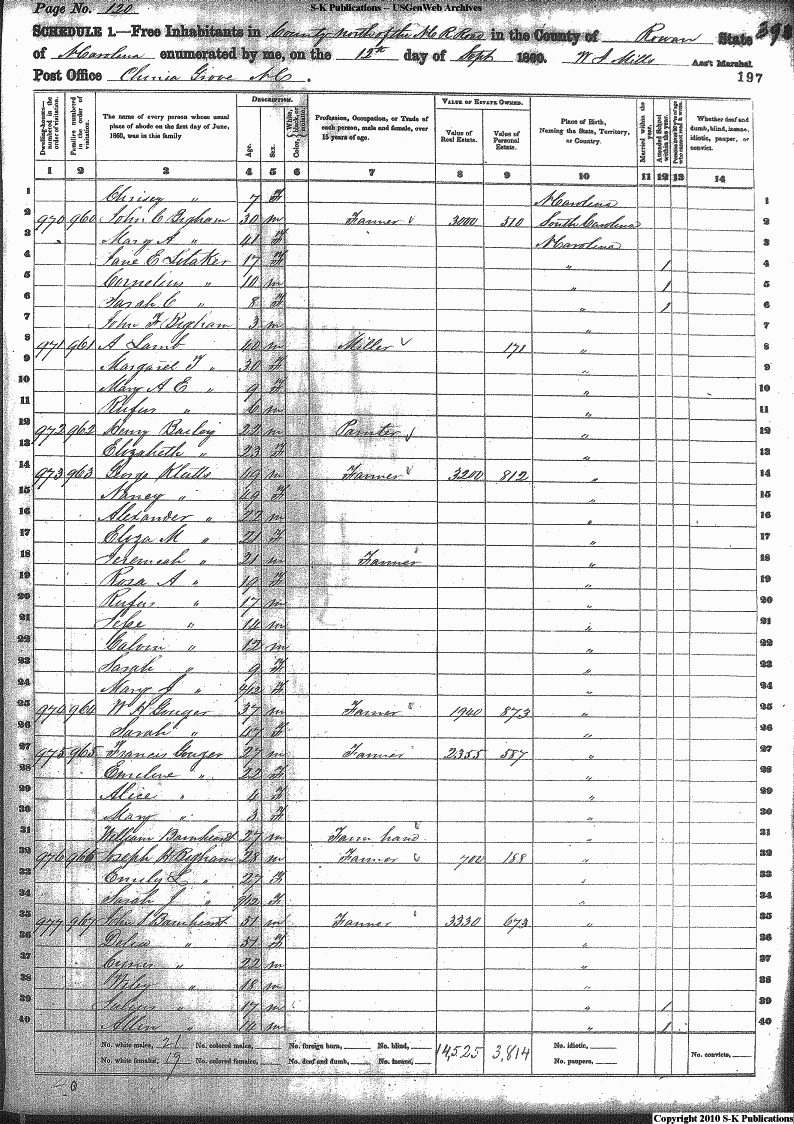 Page No. 120
S-K Publications – USGenWeb Archives
SCHEDULE 1.—Free Inhabitants in County north of the N C R Road in the County of Rowan State 393
of N Carolina enumerated by me, on the 12th day of Sept 1860. W A Mills Ass't Marshal.
Post Office China Grove N C .
197
Dwelling-houses—numbered in the order of visitation.
Families numbered in the order of visitation.
The name of every person whose usual place of abode on the first day of June, 1860, was in this family
DESCRIPTION.
Age.
Sex.
Color, White, black, or mulatto.
Profession, Occupation, or Trade of each person, male and female, over 15 years of age.
VALUE OF ESTATE OWNED.
Value of Real Estate.
Value of Personal Estate.
Place of Birth, Naming the State, Territory, or Country.
Married within the year.
Attended School within the year.
Persons over 20 years of age who cannot read & write.
Whether deaf and dumb, blind, insane, idiotic, pauper, or convict.
1 2 3 4 5 6 7 8 9 10 11 12 13 14
1 " 7 F N Carolina 1
2 970 960 John C Bigham 30 m Farmer 3000 510 South Carolina 2
3 Mary A " 41 F N Carolina 3
4 Jane E Sitaker 17 F " 1 4
5 Cornelius " 10 m " 1 5
6 Sarah C " 8 F " 1 6
7 John F Bigham 3 m " 7
8 971 961 A Lamb 40 m Miller 171 " 8
9 Margaret T " 30 F " 9
10 Mary A E " 9 F " 10
11 Rufus " 6 m " 11
12 972 962 Henry Bailey 22 m Painter " 12
13 Elizabeth " 23 F 13
14 973 963 George Kluttz 49 m Farmer 3200 812 " 14
15 Nancy " 49 F " 15
16 Alexander " 22 m " 16
17 Eliza M " 21 F " 17
18 Jeremiah " 21 m Farmer " 18
19 Rosa A " 19 F " 19
20 Rufus " 17 m " 20
21 " 14 m " 21
22 Calvin " 12 m " 22
23 Sarah " 9 F " 23
24 Mary J " 4/12 F " 24
25 974 964 W A Gouger 37 m Farmer 1940 873 " 25
26 Sarah " 47 F " 26
27 975 965 Francis Gouger 27 m Farmer 2355 587 " 27
28 Emeline " 22 F " 28
29 Alice " 4 F " 29
30 Mary " 3 F " 30
31 William Barnheardt 27 m Farm hand " 31
32 976 966 Joseph H Bigham 28 m Farmer 700 158 " 32
33 Emily L " 27 F " 33
34 Sarah J " 9/12 F " 34
35 977 967 John S Barnheardt 51 m Farmer 3330 673 " 35
36 Delia " 51 F " 36
37 " 22 m " 37
38 Wiley " 18 m " 38
39 " 17 m " 1 39
40 Allen " 10 m " 1 40
No. white males, 21 No. colored males, No. foreign born, No. blind, 14,525 3,814 No. idiotic,
No. white females, 19 No. colored females, No. deaf and dumb, No. insane, No. paupers, No. convicts,
Copyright 2010 S-K Publications